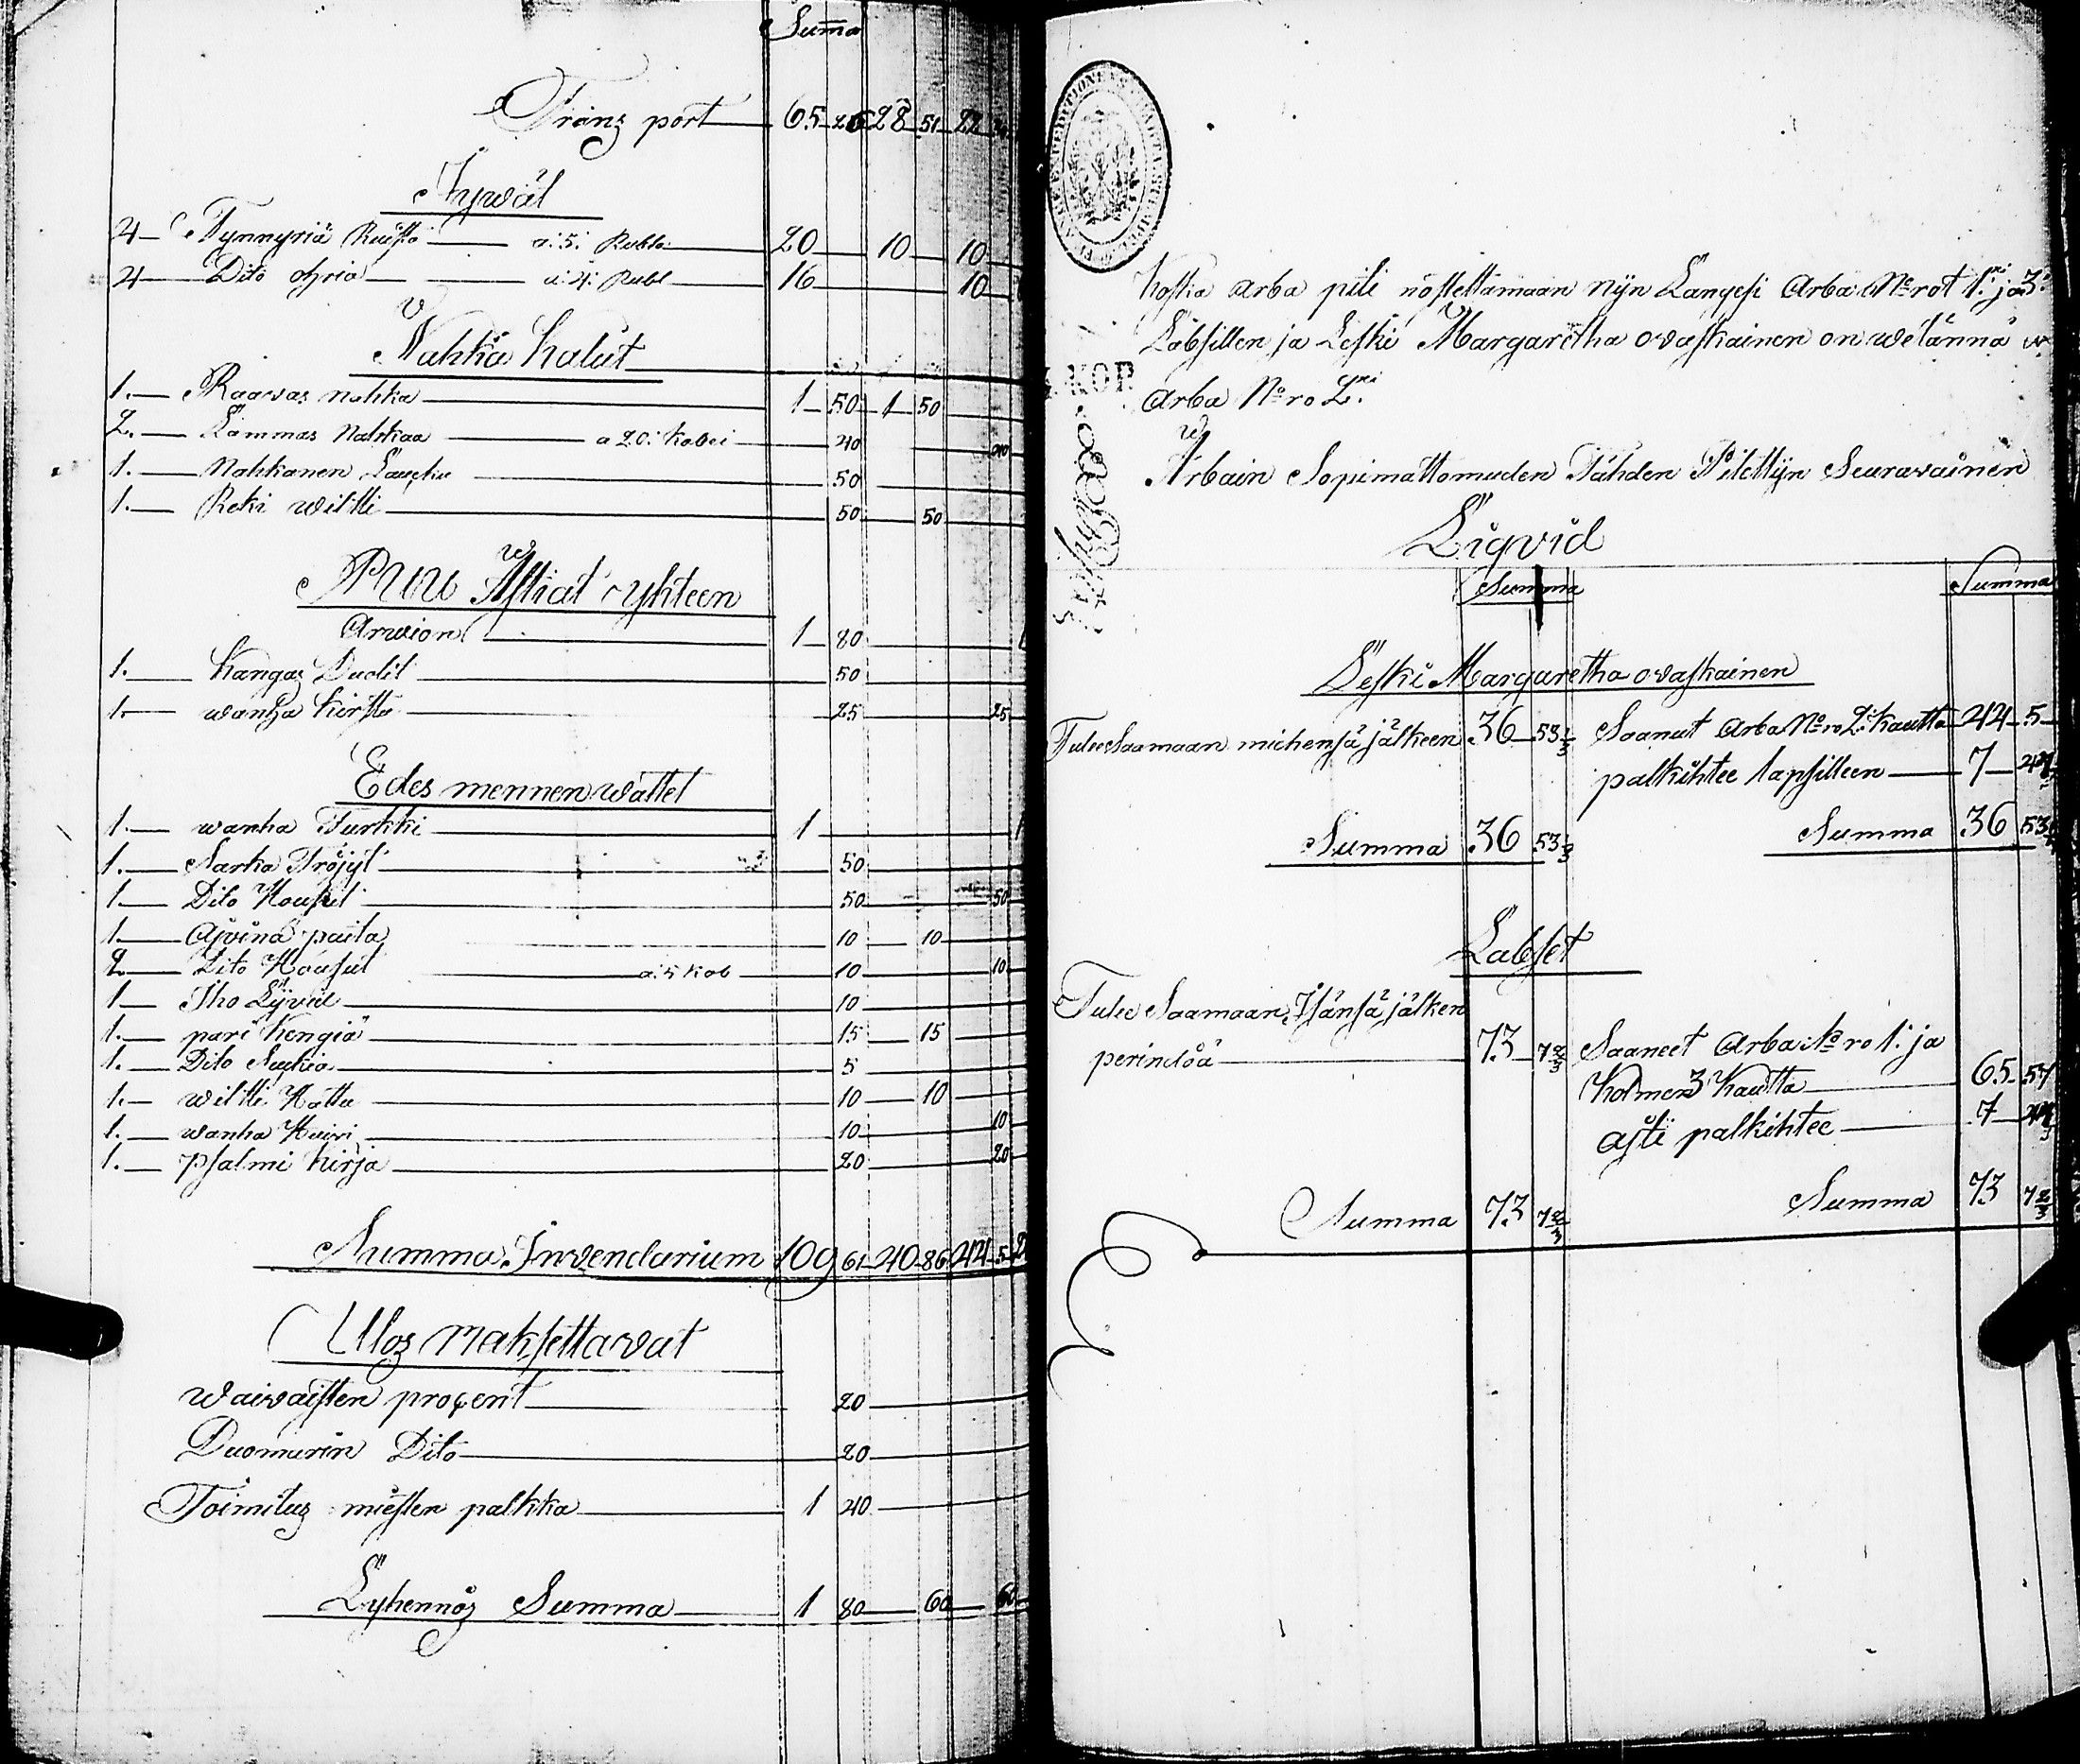 Suma
Tranz port 65 26 28 51 22
Jywät
4 Tynnyriä Ruista a: 5: Rubla 20 10 10
4 Dito ohria a: 4: Rubl 16 10
Nahka Kalut
1. Raawas nahka 1 50 1 50
2. Lammas Nahkaa a 20: Kobei 40 40
1. Nahkanen 50
1. Reki wiltti 50 50
Puu Astiat yhteen
Arwion 1 80
1. Kangas 50
1 wanha Kirstu 25 25
Edes mennen wattet
1. wanha Turkki 1
1. Sarka Tröjyt 50
1 Dito Housut 50 50
1. Ajvina paita 10 10
2 Dito Housut a: 5 kob 10 10
1 Iho Lijvit 10
1. pari Kengiä 15 15
1. Dito Sukia 5
1. wiltti Hattu 10 10
1. wanha 10 10
1. Psalmi Kirja 20 20
Summa Invendarium 109 61 40 86 44 5
Ulos maksettavat
waivaisten proçent 20
Duomarin Dito 20
Toimitus miesten palkka 1 40
Lyhennös Summa 1 80 60 60
Koska arba piti nostettamaan nijn Langesi Arba N:rot 1: ja 3:
Labsillen ja Leski Margaretha ovaskainen on wetännä
arba N:ro 2:
Arbain Sopimattomuden Tähden Pitettijn Seuravainen
Liqvid
Summa Summa
Leski Margaretha ovaskainen
Tulee Saamaan miehensä jälkeen 36 53 1/3 Saanut Arba N:ro 2: kautta 44 5
palkihtee lapsilleen 7
Summa 36 53 1/3 Summa 36 53
Labset
Tulee Saamaan Isänsä jälken
perindöä 73 7 2/3 Saaneet Arba: N:ro 1: ja
Kolmen 3 Kautta 65 57
palkihtee 7
Summa 73 7 2/3 Summa 73 7 2/3